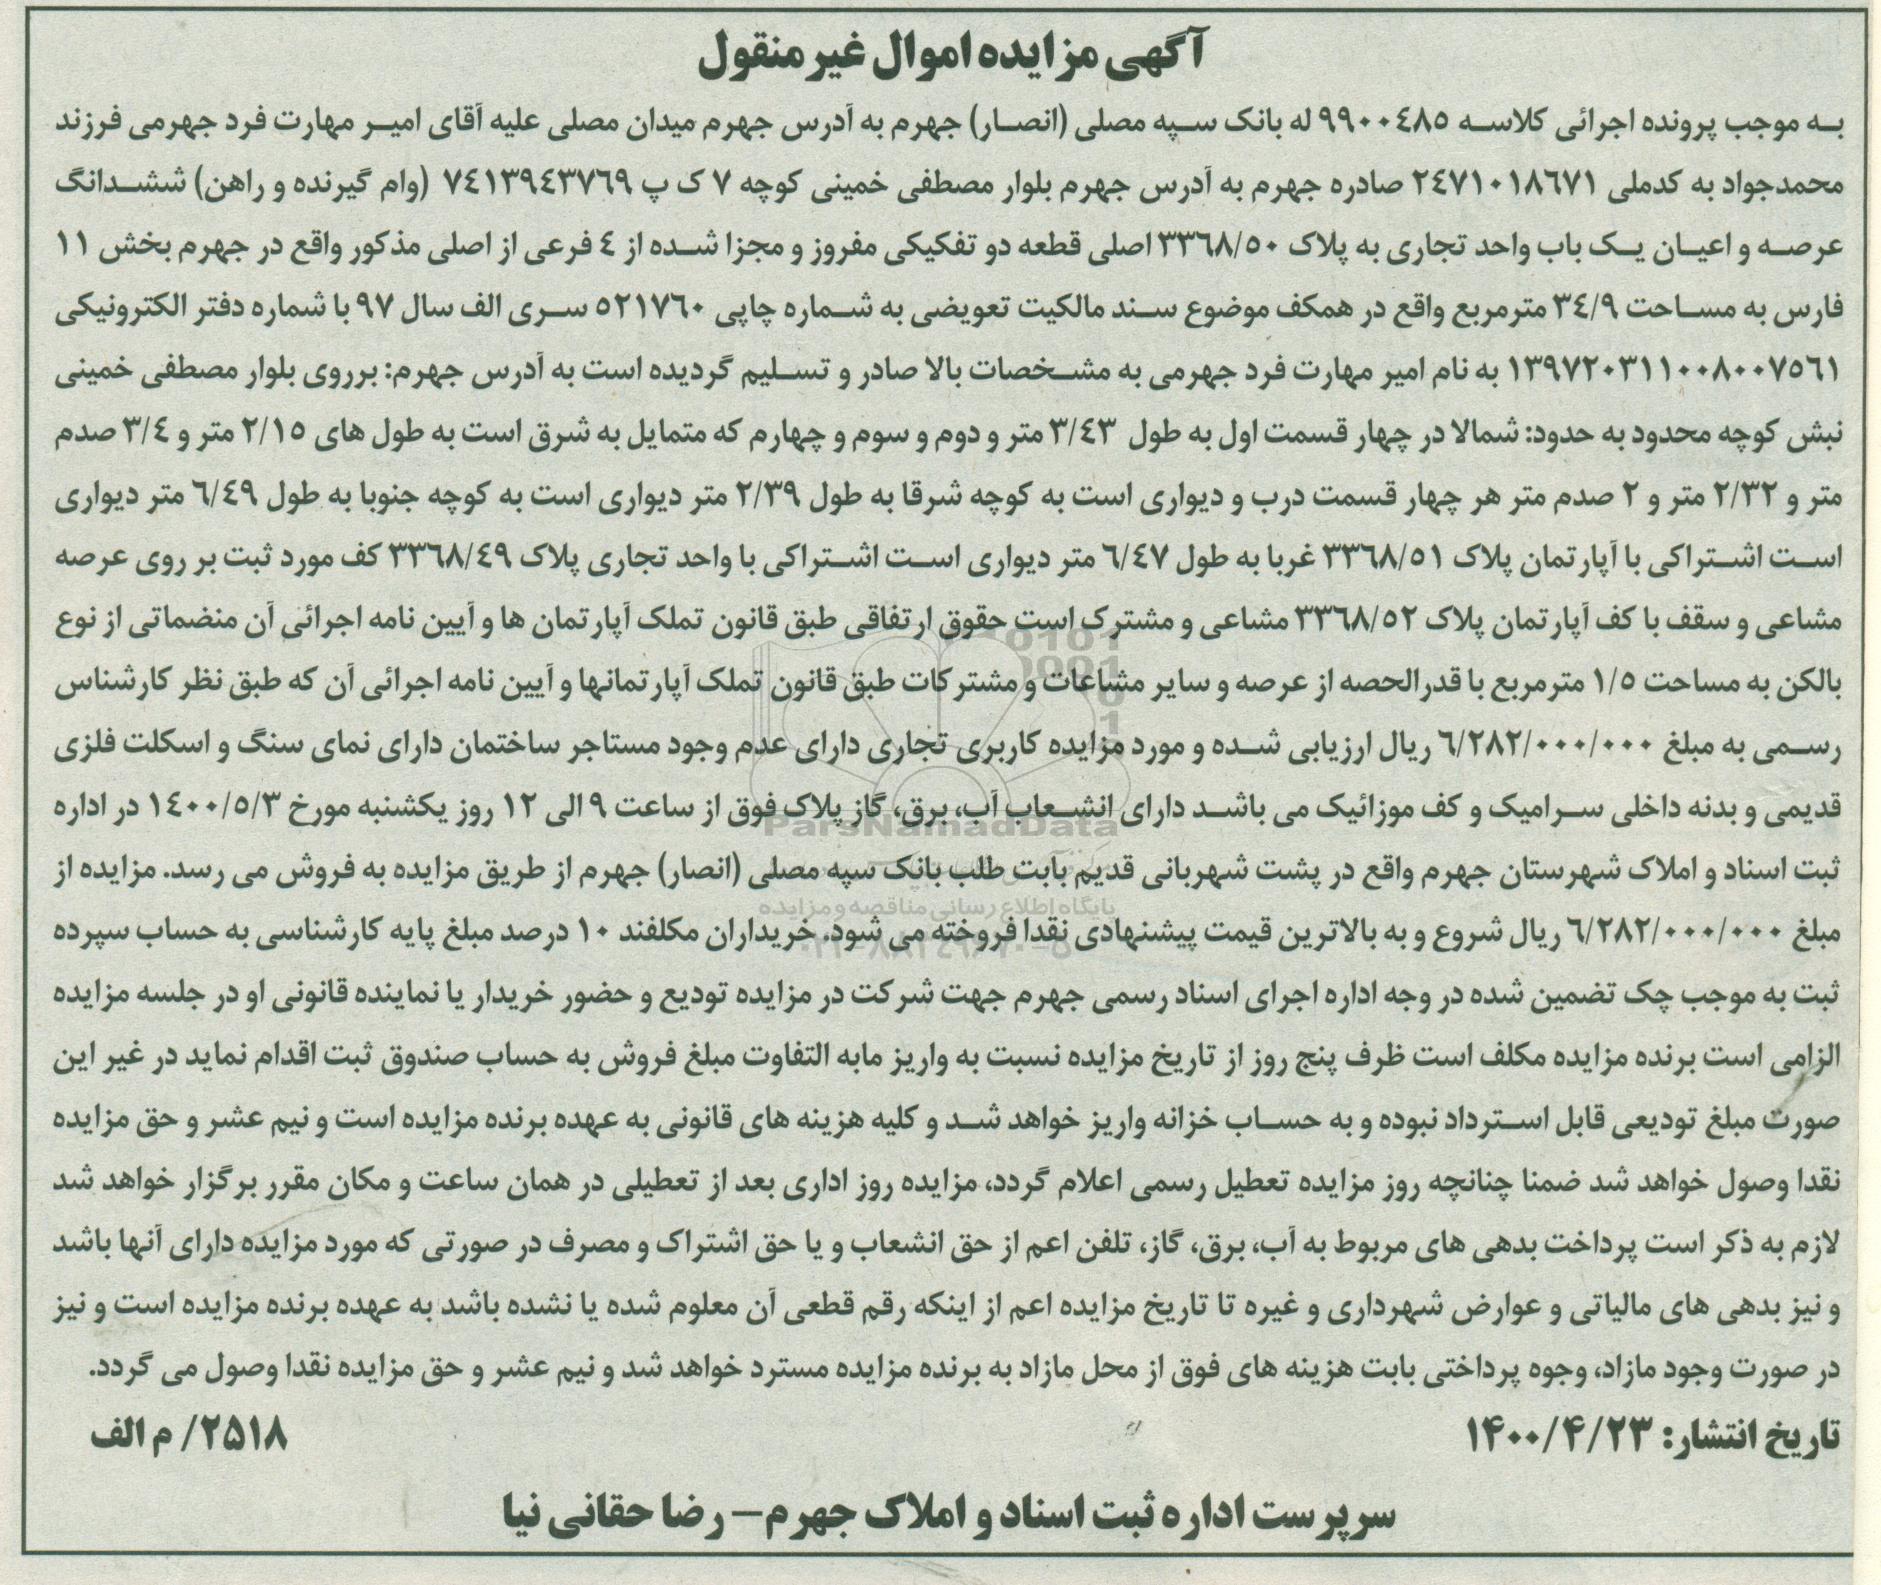 آگهی مزایده اموال غیر منقول
به موجب پرونده اجرائی کلاسه ٩٩٠٠٤٨٥ له بانک سپه مصلی (انصار) جهرم به آدرس جهرم میدان مصلی علیه آقای امیر مهارت فرد جهرمی فرزند
محمدجواد به کدملی ٢٤٧١٠١٨٦٧١ صادره جهرم به آدرس جهرم بلوار مصطفی خمینی کوچه ٧ ک پ ٧٤١٣٩٤٣٧٦٩ (وام گیرنده و راهن) ششدانگ
عرصه و اعیان یک باب واحد تجاری به پلاک ٣٣٦٨/٥٠ اصلی قطعه دو تفکیکی مفروز و مجزا شده از ٤ فرعی از اصلی مذکور واقع در جهرم بخش ١١
فارس به مساحت ٣٤/٩ مترمربع واقع در همکف موضوع سند مالکیت تعویضی به شماره چاپی ٥٢١٧٦٠ سری الف سال ٩٧ با شماره دفتر الکترونیکی
١٣٩٧٢٠٣١١٠٠٨٠٠٧٥٦١ به نام امیر مهارت فرد جهرمی به مشخصات بالا صادر و تسلیم گردیده است به آدرس جهرم: برروی بلوار مصطفی خمینی
نبش کوچه محدود به حدود: شمالا در چهار قسمت اول به طول ٣/٤٣ متر و دوم و سوم و چهارم که متمایل به شرق است به طول های ٢/١٥ متر و ٣/٤ صدم
متر و ٢/٣٢ متر و ٢ صدم متر هر چهار قسمت درب و دیواری است به کوچه شرقا به طول ٢/٣٩ متر دیواری است به کوچه جنوبا به طول ٦/٤٩ متر دیواری
است اشتراکی با آپارتمان پلاک ٣٣٦٨/٥١ غربا به طول ٦/٤٧ متر دیواری است اشتراکی با واحد تجاری پلاک ٣٣٦٨/٤٩ کف مورد ثبت بر روی عرصه
مشاعی و سقف با کف آپارتمان پلاک ٣٣٦٨/٥٢ مشاعی و مشترک است حقوق ارتفاقی طبق قانون تملک آپارتمان ها و آیین نامه اجرائی آن منضماتی از نوع
بالکن به مساحت ١/٥ مترمربع با قدرالحصه از عرصه و سایر مشاعات و مشترکات طبق قانون تملک آپارتمانها و آیین نامه اجرائی آن که طبق نظر کارشناس
رسمی به مبلغ ٦/٢٨٢/٠٠٠/٠٠٠ ریال ارزیابی شده و مورد مزایده کاربری تجاری دارای عدم وجود مستاجر ساختمان دارای نمای سنگ و اسکلت فلزی
قدیمی و بدنه داخلی سرامیک و کف موزائیک می باشد دارای انشعاب آب، برق، گاز پلاک فوق از ساعت ٩ الی ١٢ روز یکشنبه مورخ ١٤٠٠/٥/٣ در اداره
ثبت اسناد و املاک شهرستان جهرم واقع در پشت شهربانی قدیم بابت طلب بانک سپه مصلی (انصار) جهرم از طریق مزایده به فروش می رسد. مزایده از
مبلغ ٦/٢٨٢/٠٠٠/٠٠٠ ریال شروع و به بالاترین قیمت پیشنهادی نقدا فروخته می شود. خریداران مکلفند ١٠ درصد مبلغ پایه کارشناسی به حساب سپرده
ثبت به موجب چک تضمین شده در وجه اداره اجرای اسناد رسمی جهرم جهت شرکت در مزایده تودیع و حضور خریدار یا نماینده قانونی او در جلسه مزایده
الزامی است برنده مزایده مکلف است ظرف پنج روز از تاریخ مزایده نسبت به واریز مابه التفاوت مبلغ فروش به حساب صندوق ثبت اقدام نماید در غیر این
صورت مبلغ تودیعی قابل استرداد نبوده و به حساب خزانه واریز خواهد شد و کلیه هزینه های قانونی به عهده برنده مزایده است و نیم عشر و حق مزایده
نقدا وصول خواهد شد ضمنا چنانچه روز مزایده تعطیل رسمی اعلام گردد، مزایده روز اداری بعد از تعطیلی در همان ساعت و مکان مقرر برگزار خواهد شد
لازم به ذکر است پرداخت بدهی های مربوط به آب، برق، گاز، تلفن اعم از حق انشعاب و یا حق اشتراک و مصرف در صورتی که مورد مزایده دارای آنها باشد
و نیز بدهی های مالیاتی و عوارض شهرداری و غیره تا تاریخ مزایده اعم از اینکه رقم قطعی آن معلوم شده یا نشده باشد به عهده برنده مزایده است و نیز
در صورت وجود مازاد، وجوه پرداختی بابت هزینه های فوق از محل مازاد به برنده مزایده مسترد خواهد شد و نیم عشر و حق مزایده نقدا وصول می گردد.
تاریخ انتشار: ۱۴۰۰/۴/۲۳
۲۵۱۸/ م الف
سرپرست اداره ثبت اسناد و املاک جهرم– رضا حقانی نیا
ParsNamadData
پایگاه اطلاع رسانی مناقصه و مزایده